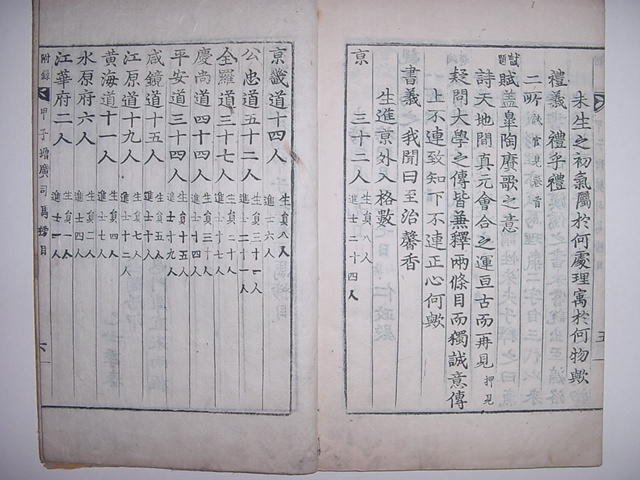 未生之初氣屬於何處理寓於何物歟
禮義 禮乎禮
二所 試官見卷首
試題 賦 盖臯陶賡歌之意
詩天地間真元會合之運亘古而再見 押見
疑問大學之傳皆兼釋兩條目而獨誠意傳
上不連致知下不連正心何歟
書義 我聞曰至治馨香
生進京外入格數
京 三十二人 生員八人 進士二十四人
京畿道十四人 生員八人 進士六人
公忠道五十二人 生員三十一人 進士二十一人
全羅道三十七人 生員二十人 進士十七人
慶尚道四十四人 生員三十人 進士十四人
平安道三十四人 生員十五人 進士十九人
咸鏡道十五人 生員五人 進士十人
江原道十九人 生員七人 進士十二人
黃海道十一人 生員二人 進士九人
水原府六人 生員二人 進士四人
江華府二人 生員一人 進士一人
附錄 甲子增廣司馬榜目 六